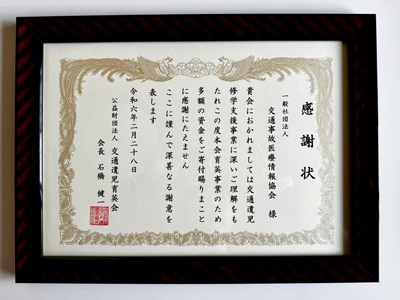 感謝状
一般社団法人
交通事故医療情報協会 様
貴会におかれましては交通遺児
修学支援事業に深いご理解をも
たれこの度本会育英事業のため
多額の資金をご寄付賜りまこと
に感謝にたえません
ここに謹んで深甚なる謝意を
表します
令和六年二月二十八日
公益財団法人 交通遺児育英会
会長 石橋 健一